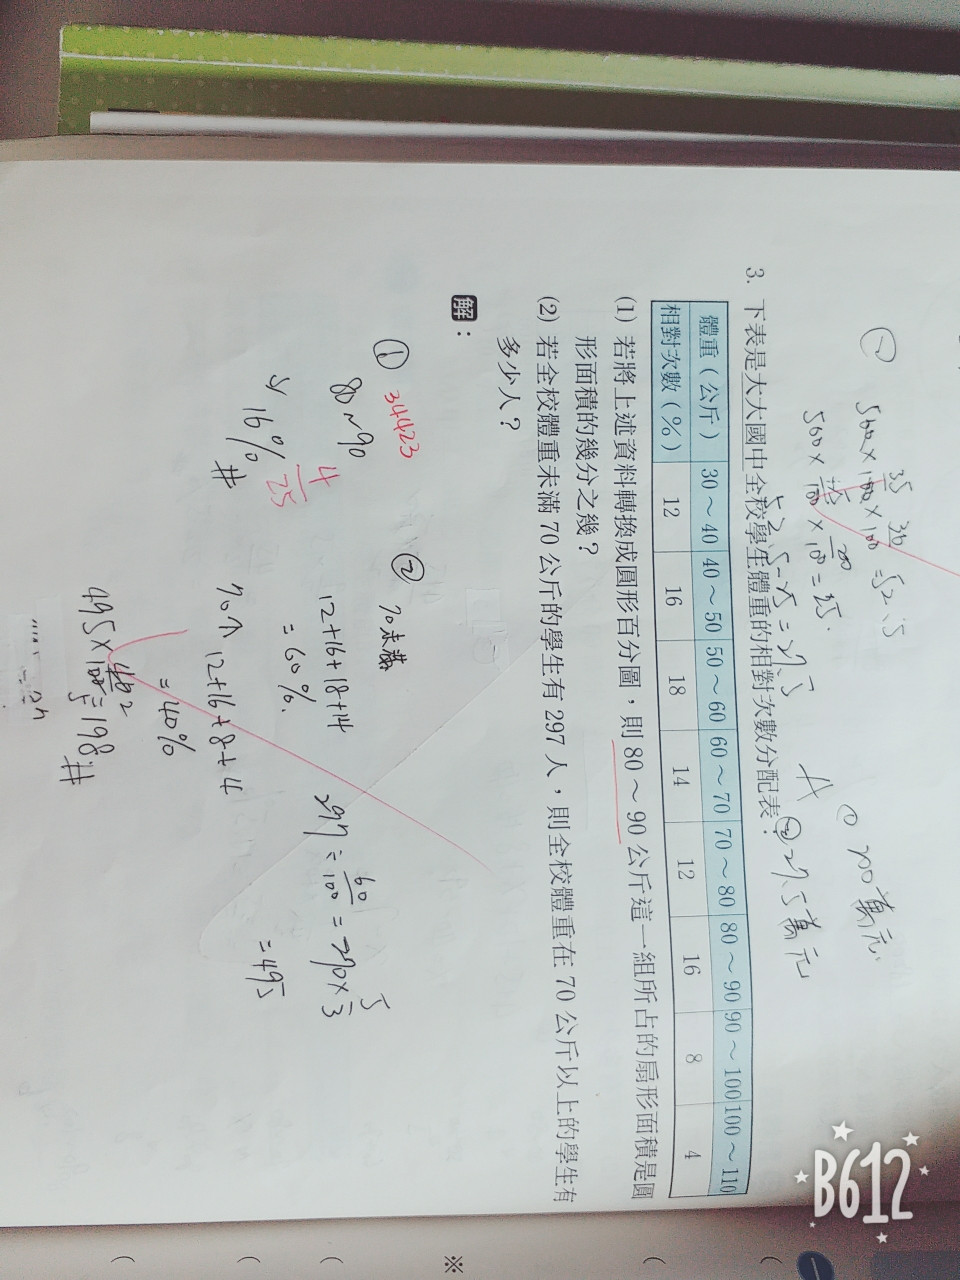 500 × 35/100 × 30/100 = 52.5
500 × 25/100 × 20/100 = 25.
52.5-25=27.5
A ① 200萬元.
② 27.5萬元
3. 下表是大大國中全校學生體重的相對次數分配表：
體重（公斤） 30～40 40～50 50～60 60～70 70～80 80～90 90～100 100～110
相對次數（%） 12 16 18 14 12 16 8 4
(1) 若將上述資料轉換成圓形百分圖，則 80～90 公斤這一組所占的扇形面積是圓
形面積的幾分之幾？
(2) 若全校體重未滿 70 公斤的學生有 297 人，則全校體重在 70 公斤以上的學生有
多少人？
解：
① 34423
80~90
16% #
4/25
② 70未滿
12+16+18+14
= 60%.
297 ÷ 60/100 = 290 × 5/3
= 495
70↑ 12+16+8+4
= 40%
495 × 40/100 = 198 #
B612
※